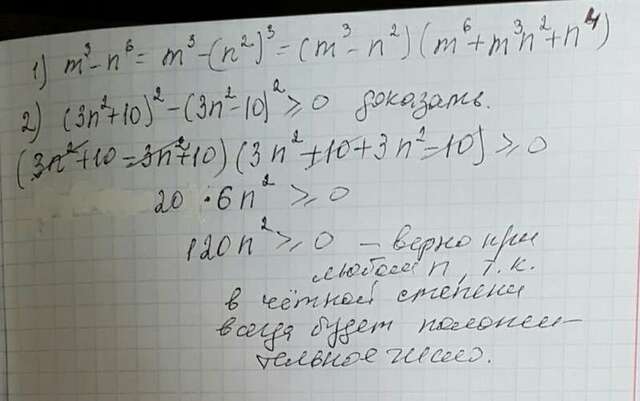 1) m³-n⁶ = m³-(n²)³ = (m³-n²)(m⁶+m³n²+n⁴)
2) (3n²+10)²-(3n²-10)² ⩾ 0 доказать.
(3n²+10-3n²+10)(3n²+10+3n²-10) ⩾ 0
20 · 6n² ⩾ 0
120n² ⩾ 0 - верно при
любом n, т.к.
в чётной степени
всегда будет положи-
тельное число.